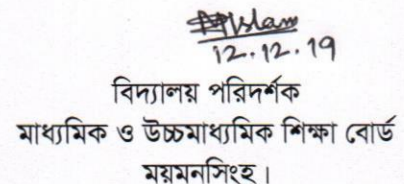 Islam
12.12.19
বিদ্যালয় পরিদর্শক
মাধ্যমিক ও উচ্চমাধ্যমিক শিক্ষা বোর্ড
ময়মনসিংহ।